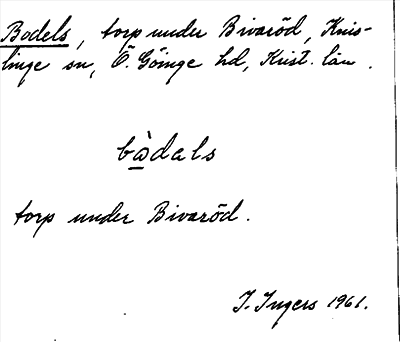 Bodels, torp under Bivaröd, Knis-
linge sn, Ö. Göinge hd, Krist. län.
bàdals
torp under Bivaröd.
I. Ingers 1961.